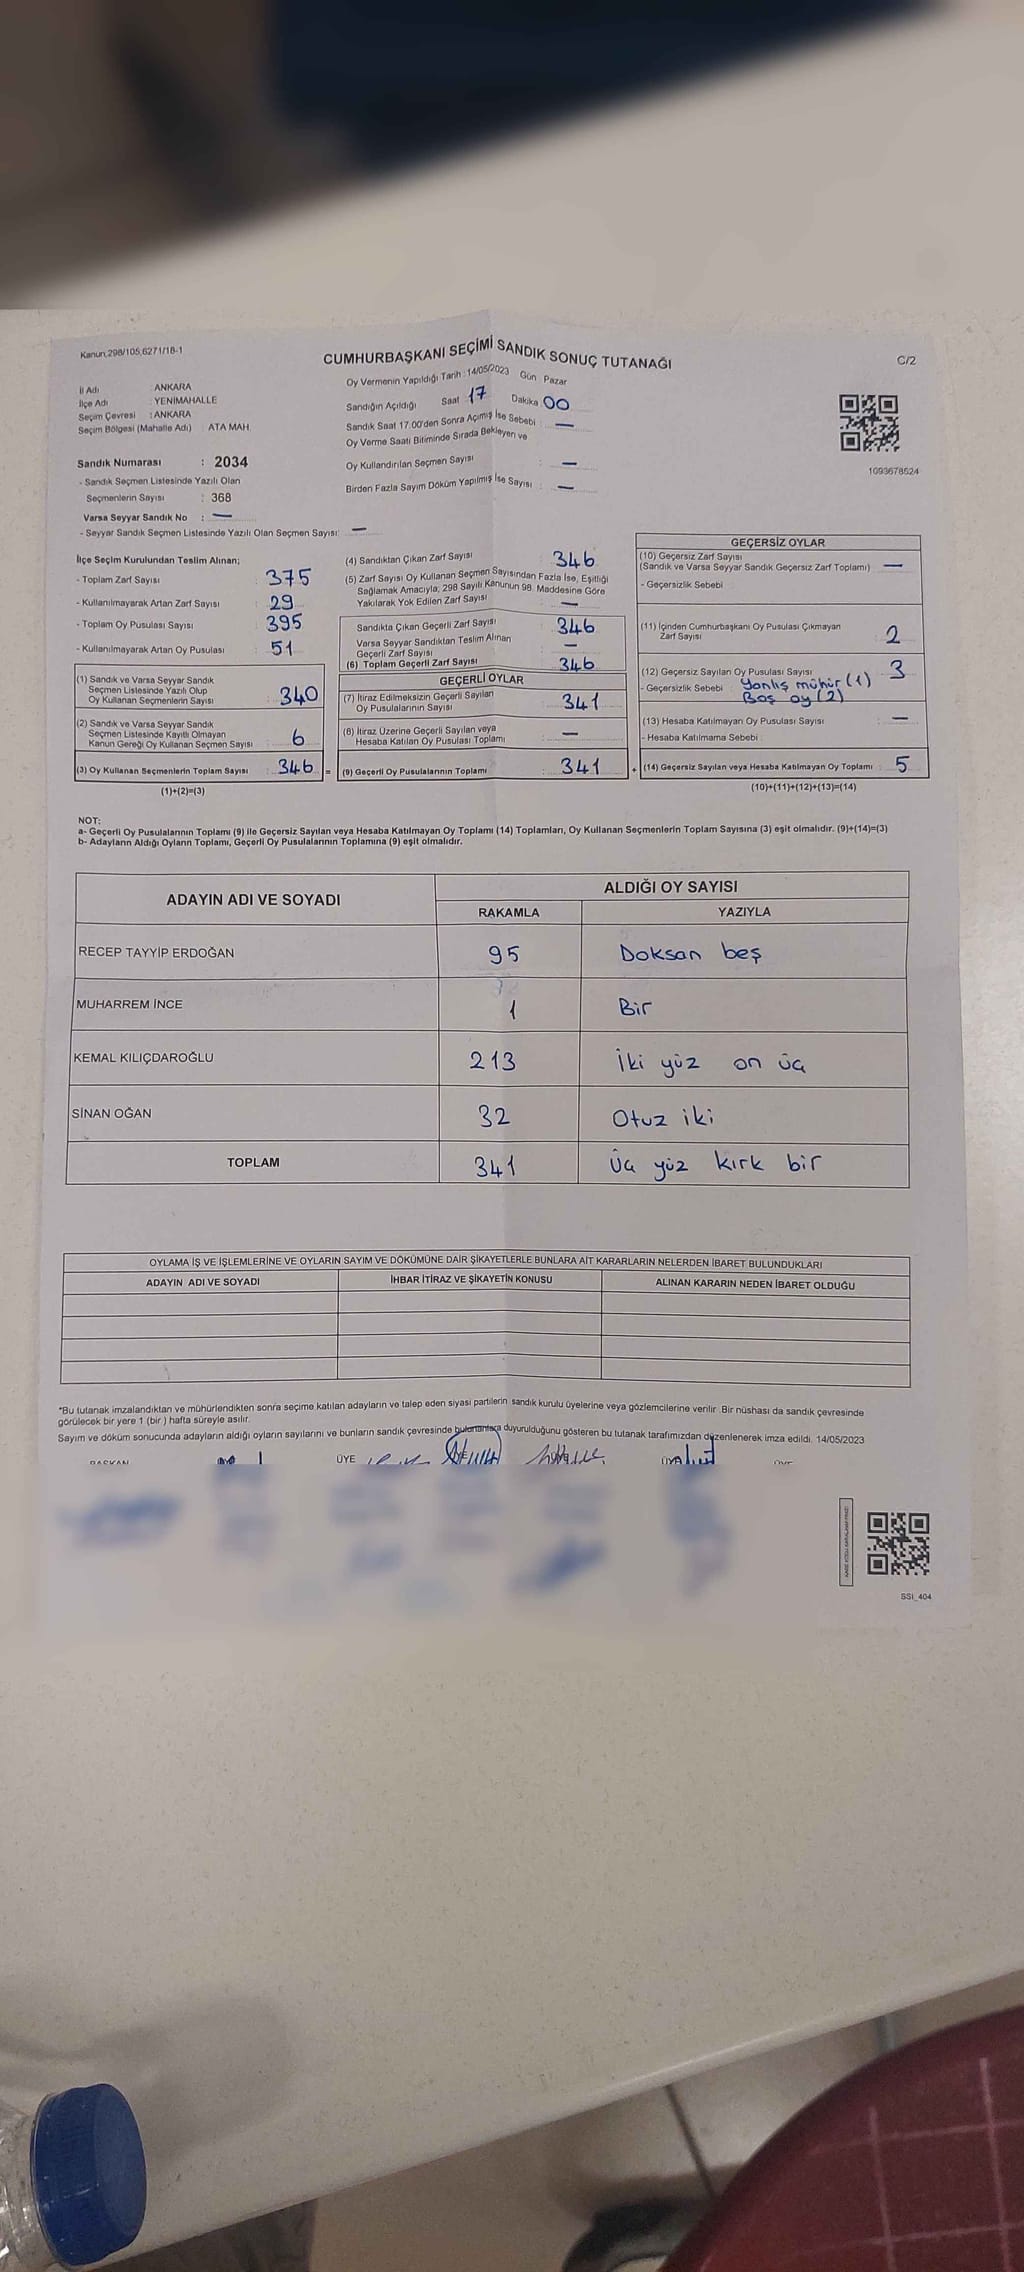 Kanun,298/105,6271/18-1
CUMHURBAŞKANI SEÇİMİ SANDIK SONUÇ TUTANAĞI
C/2
İl Adı ANKARA
İlçe Adı : YENİMAHALLE
Seçim Çevresi : ANKARA
Seçim Bölgesi (Mahalle Adı) : ATA MAH.
Sandık Numarası : 2034
- Sandık Seçmen Listesinde Yazılı Olan
Seçmenlerin Sayısı : 368
Varsa Seyyar Sandık No : —
- Seyyar Sandık Seçmen Listesinde Yazılı Olan Seçmen Sayısı: —
Oy Vermenin Yapıldığı Tarih :14/05/2023 Gün Pazar
Sandığın Açıldığı Saat 17 Dakika 00
Sandık Saat 17.00'den Sonra Açımış İse Sebebi : —
Oy Verme Saati Bitiminde Sırada Bekleyen ve
Oy Kullandırılan Seçmen Sayısı : —
Birden Fazla Sayım Döküm Yapılmış İse Sayısı : —
1093678524
İlçe Seçim Kurulundan Teslim Alınan;
- Toplam Zarf Sayısı : 375
- Kullanılmayarak Artan Zarf Sayısı : 29
- Toplam Oy Pusulası Sayısı : 395
- Kullanılmayarak Artan Oy Pusulası : 51
(1) Sandık ve Varsa Seyyar Sandık
Seçmen Listesinde Yazılı Olup
Oy Kullanan Seçmenlerin Sayısı : 340
(2) Sandık ve Varsa Seyyar Sandık
Seçmen Listesinde Kayıtlı Olmayan
Kanun Gereği Oy Kullanan Seçmen Sayısı : 6
(3) Oy Kullanan Seçmenlerin Toplam Sayısı : 346 =
(1)+(2)=(3)
(4) Sandıktan Çıkan Zarf Sayısı : 346
(5) Zarf Sayısı Oy Kullanan Seçmen Sayısından Fazla İse, Eşitliği
Sağlamak Amacıyla, 298 Sayılı Kanunun 98. Maddesine Göre
Yakılarak Yok Edilen Zarf Sayısı : —
Sandıkta Çıkan Geçerli Zarf Sayısı : 346
Varsa Seyyar Sandıktan Teslim Alınan
Geçerli Zarf Sayısı : —
(6) Toplam Geçerli Zarf Sayısı : 346
GEÇERLİ OYLAR
(7) İtiraz Edilmeksizin Geçerli Sayılan
Oy Pusulalarının Sayısı : 341
(8) İtiraz Üzerine Geçerli Sayılan veya
Hesaba Katılan Oy Pusulası Toplamı : —
(9) Geçerli Oy Pusulalarının Toplamı : 341 +
GEÇERSİZ OYLAR
(10) Geçersiz Zarf Sayısı
(Sandık ve Varsa Seyyar Sandık Geçersiz Zarf Toplamı) : —
- Geçersizlik Sebebi
(11) İçinden Cumhurbaşkanı Oy Pusulası Çıkmayan
Zarf Sayısı : 2
(12) Geçersiz Sayılan Oy Pusulası Sayısı : 3
- Geçersizlik Sebebi Yanlış mühür (1)
Boş oy (2)
(13) Hesaba Katılmayan Oy Pusulası Sayısı : —
- Hesaba Katılmama Sebebi :
(14) Geçersiz Sayılan veya Hesaba Katılmayan Oy Toplamı : 5
(10)+(11)+(12)+(13)=(14)
NOT:
a- Geçerli Oy Pusulalarının Toplamı (9) ile Geçersiz Sayılan veya Hesaba Katılmayan Oy Toplamı (14) Toplamları, Oy Kullanan Seçmenlerin Toplam Sayısına (3) eşit olmalıdır. (9)+(14)=(3)
b- Adayların Aldığı Oyların Toplamı, Geçerli Oy Pusulalarının Toplamına (9) eşit olmalıdır.
ADAYIN ADI VE SOYADI
ALDIĞI OY SAYISI
RAKAMLA YAZIYLA
RECEP TAYYİP ERDOĞAN 95 Doksan beş
MUHARREM İNCE 1 Bir
KEMAL KILIÇDAROĞLU 213 İki yüz on üç
SİNAN OĞAN 32 Otuz iki
TOPLAM 341 Üç yüz kırk bir
OYLAMA İŞ VE İŞLEMLERİNE VE OYLARIN SAYIM VE DÖKÜMÜNE DAİR ŞİKAYETLERLE BUNLARA AİT KARARLARIN NELERDEN İBARET BULUNDUKLARI
ADAYIN ADI VE SOYADI İHBAR İTİRAZ VE ŞİKAYETİN KONUSU ALINAN KARARIN NEDEN İBARET OLDUĞU
*Bu tutanak imzalandıktan ve mühürlendikten sonra seçime katılan adayların ve talep eden siyasi partilerin sandık kurulu üyelerine veya gözlemcilerine verilir. Bir nüshası da sandık çevresinde
görülecek bir yere 1 (bir ) hafta süreyle asılır.
Sayım ve döküm sonucunda adayların aldığı oyların sayılarını ve bunların sandık çevresinde bulunanlara duyurulduğunu gösteren bu tutanak tarafımızdan düzenlenerek imza edildi. 14/05/2023
BAŞKAN ÜYE
SSI_404